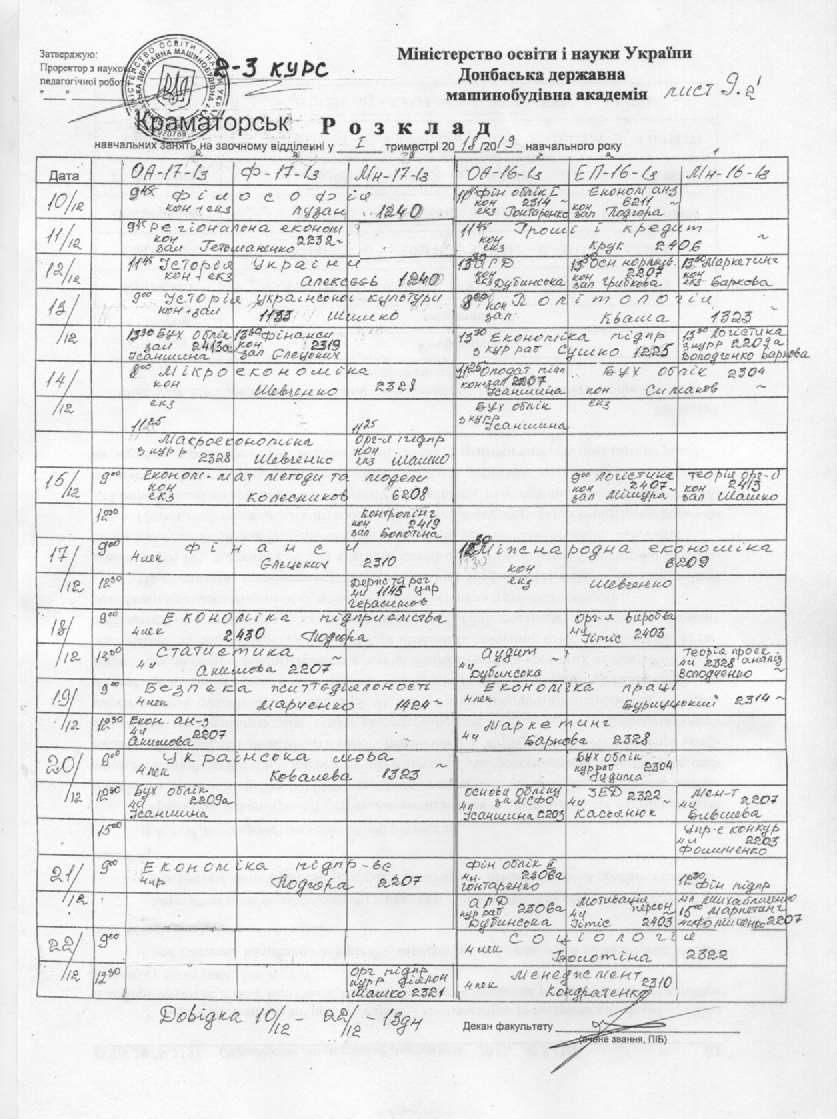 Затверджую:
Проректор з науко
педагогічної робот
2-3 КУРС
Міністерство освіти і науки України
Донбаська державна
машинобудівна академія
лист 9.2
Краматорськ Розклад
навчальних занять на заочному відділенні у I триместрі 2018/2019 навчального року
Дата ОА-17-1з Ф-17-1з Мн-17-1з ОА-16-1з ЕП-16-1з Мн-16-1з
10/12 9⁴⁵ Філософія
кон+екз Пузан 1240
Фін облік I
кон 2314
екз Гонтаренко
Економ анз
кон 6211
зал Подгора
11/12 9⁴⁵ Регіональна економ
кон
зал Гетьманенко 2232
11⁴⁵ Гроші і кредит
кон
екз Крук 2406
12/12 11⁴⁵ Історія України
кон+екз Алексєєв 1240
13³⁰ АРД
кон
екз Дубинська
13³⁰ Осн нормув.
кон 2207
зал Грибкова
13³⁰ Маркетинг
кон
екз Баркова
13/12 9⁰⁰ Історія української культури
кон+зал 1133 Шишко
8⁰⁰ Політологія
кон
зал Кваша 1323
13³⁰ Бух облік
зал 2413а
Ісаншина
13³⁰ Фінанси
кон 2319
зал Єлецьких
13³⁰ Економіка підпр
з кур раб Сушко 1225
13³⁰ Логістика
з курр 2209а
Володченко Баркова
14/12 8⁰⁰ Мікроекономіка
кон Шевченко 2328
екз
11²⁵ Оподат підп
кон+зал 2207
Ісаншина
Бух облік 2304
кон Сімаков
екз
Бух облік
з курр
Ісаншина
11²⁵
Макроекономіка
з курр 2328 Шевченко
11²⁵
Орг-я підпр
кон
екз Шашко
15/12 9⁰⁰ Економ-мат методи та моделі
кон
екз Колесников 6208
9⁰⁰ Логістика
кон 2407
зал Мішура
Теорія орг-й
кон 2413
зал Шашко
12³⁰ Контролінг
кон 2419
зал Болотіна
17/12 9⁰⁰ Фінанси
4 лек Єлецьких 2310
12³⁰ Міжнародна економіка
кон 6209
екз Шевченко
12³⁰ Держ та рег
4ч 1145 упр
Герасимов
18/12 9⁰⁰ Економіка підприємства
4 лек 2430 Подгора
Орг-я виробва
4ч
Гітіс 2403
12³⁰ Статистика
4ч Акимова 2207
Аудит
4ч
Дубинська
Теорія проек
4ч 2328 аналіз
Володченко
19/12 9⁰⁰ Безпека життєдіяльності
4 лек Марченко 1424
Економіка праці
4 лек Бурцуцький 2314
12³⁰ Екон. ан-з
4ч 2207
Акимова
Маркетинг
4ч Баркова 2328
20/12 9⁰⁰ Українська мова
4 лек Ковалева 1323
Бух облік
кур раб 2304
Гудима
12³⁰ Бух облік
4ч 2209а
Ісаншина
Основи обліку
4ч за МСФО
Ісаншина 2203
ЗЕД 2322
4ч
Касьянюк
Мен-т
4ч 2207
Бившева
15⁰⁰ Упр-є конкур
4ч 2203
Фоминенко
21/12 9⁰⁰ Економіка підпр-ве
4 пр Подгора 2207
Фін облік II
4ч 2306а
Гонтаренко
12³⁰ Фін підпр
АРД
кур раб 2306а
Дубинська
Мотивація
4ч персон
Гітіс 2403
15⁰⁰ Маркетинг
2207
22/12 9⁰⁰ Соціологія
4 лек Болотіна 2322
12³⁰ Орг підпр
курр
Шашко 2321
Менеджмент
4 лек Кондратенко 2310
Довідка 10/12 – 22/12 – 13дн
Декан факультету
(вчене звання, ПІБ)